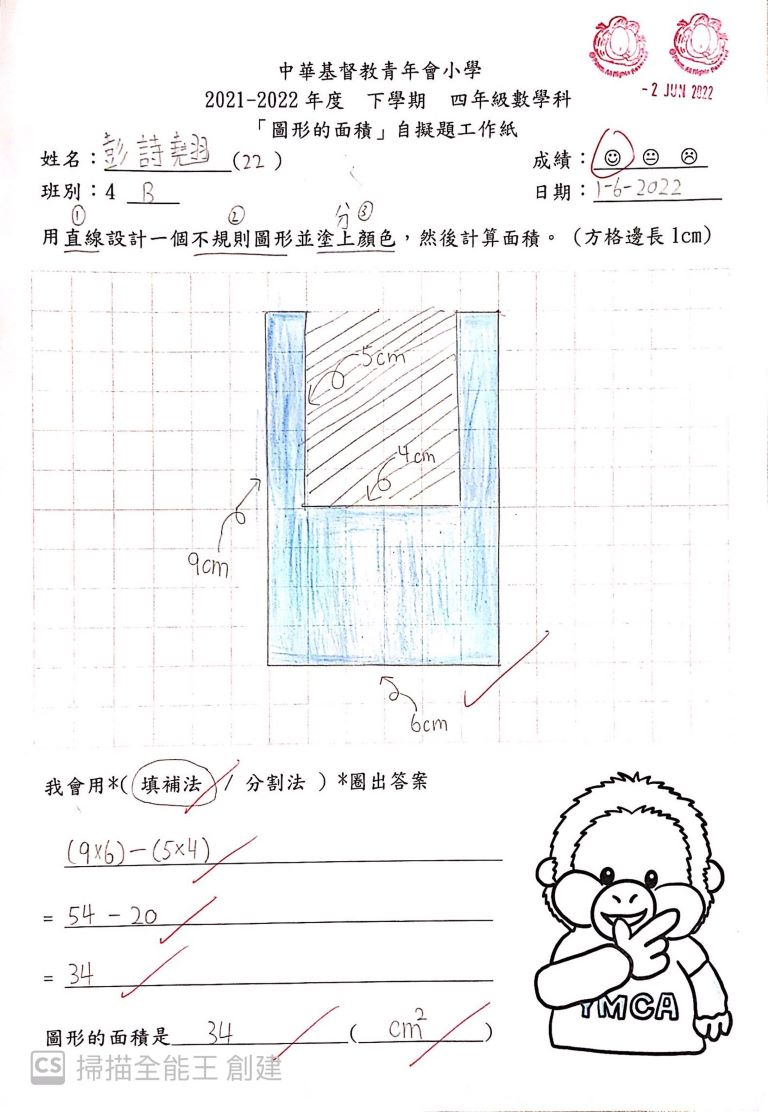 - 2 JUN 2022
中華基督教青年會小學
2021-2022 年度 下學期 四年級數學科
「圖形的面積」自擬題工作紙
姓名:彭詩翹(22) 成績:
班別:4 B 日期:1-6-2022
① ② 分③
用直線設計一個不規則圖形並塗上顏色,然後計算面積。(方格邊長 1cm)
5cm
4cm
9cm
6cm
我會用*( 填補法 / 分割法 ) *圈出答案
(9×6)-(5×4)
= 54 - 20
= 34
圖形的面積是 34 ( cm² )
YMCA
CS 掃描全能王 創建